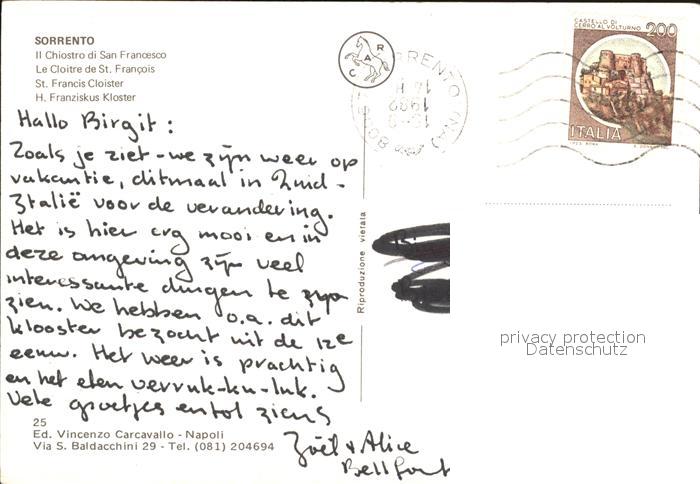 SORRENTO
Il Chiostro di San Francesco
Le Cloitre de St. François
St. Francis Cloister
H. Franziskus Kloster
Hallo Birgit:
Zoals je ziet - we zijn weer op
vakantie, ditmaal in Zuid-
Italië voor de verandering.
Het is hier erg mooi en in
deze omgeving zijn veel
interessante dingen te zijn
zien. We hebben o.a. dit
klooster bezocht uit de 12e
eeuw. Het weer is prachtig
en het eten verruk-ku-luk.
Vele groetjes en tot ziens
Joël + Alice
Bellfort
25
Ed. Vincenzo Carcavallo - Napoli
Via S. Baldacchini 29 - Tel. (081) 204694
Riproduzione vietata
CAR
CASTELLO DI
CERRO AL VOLTURNO
200
ITALIA
privacy protection
Datenschutz